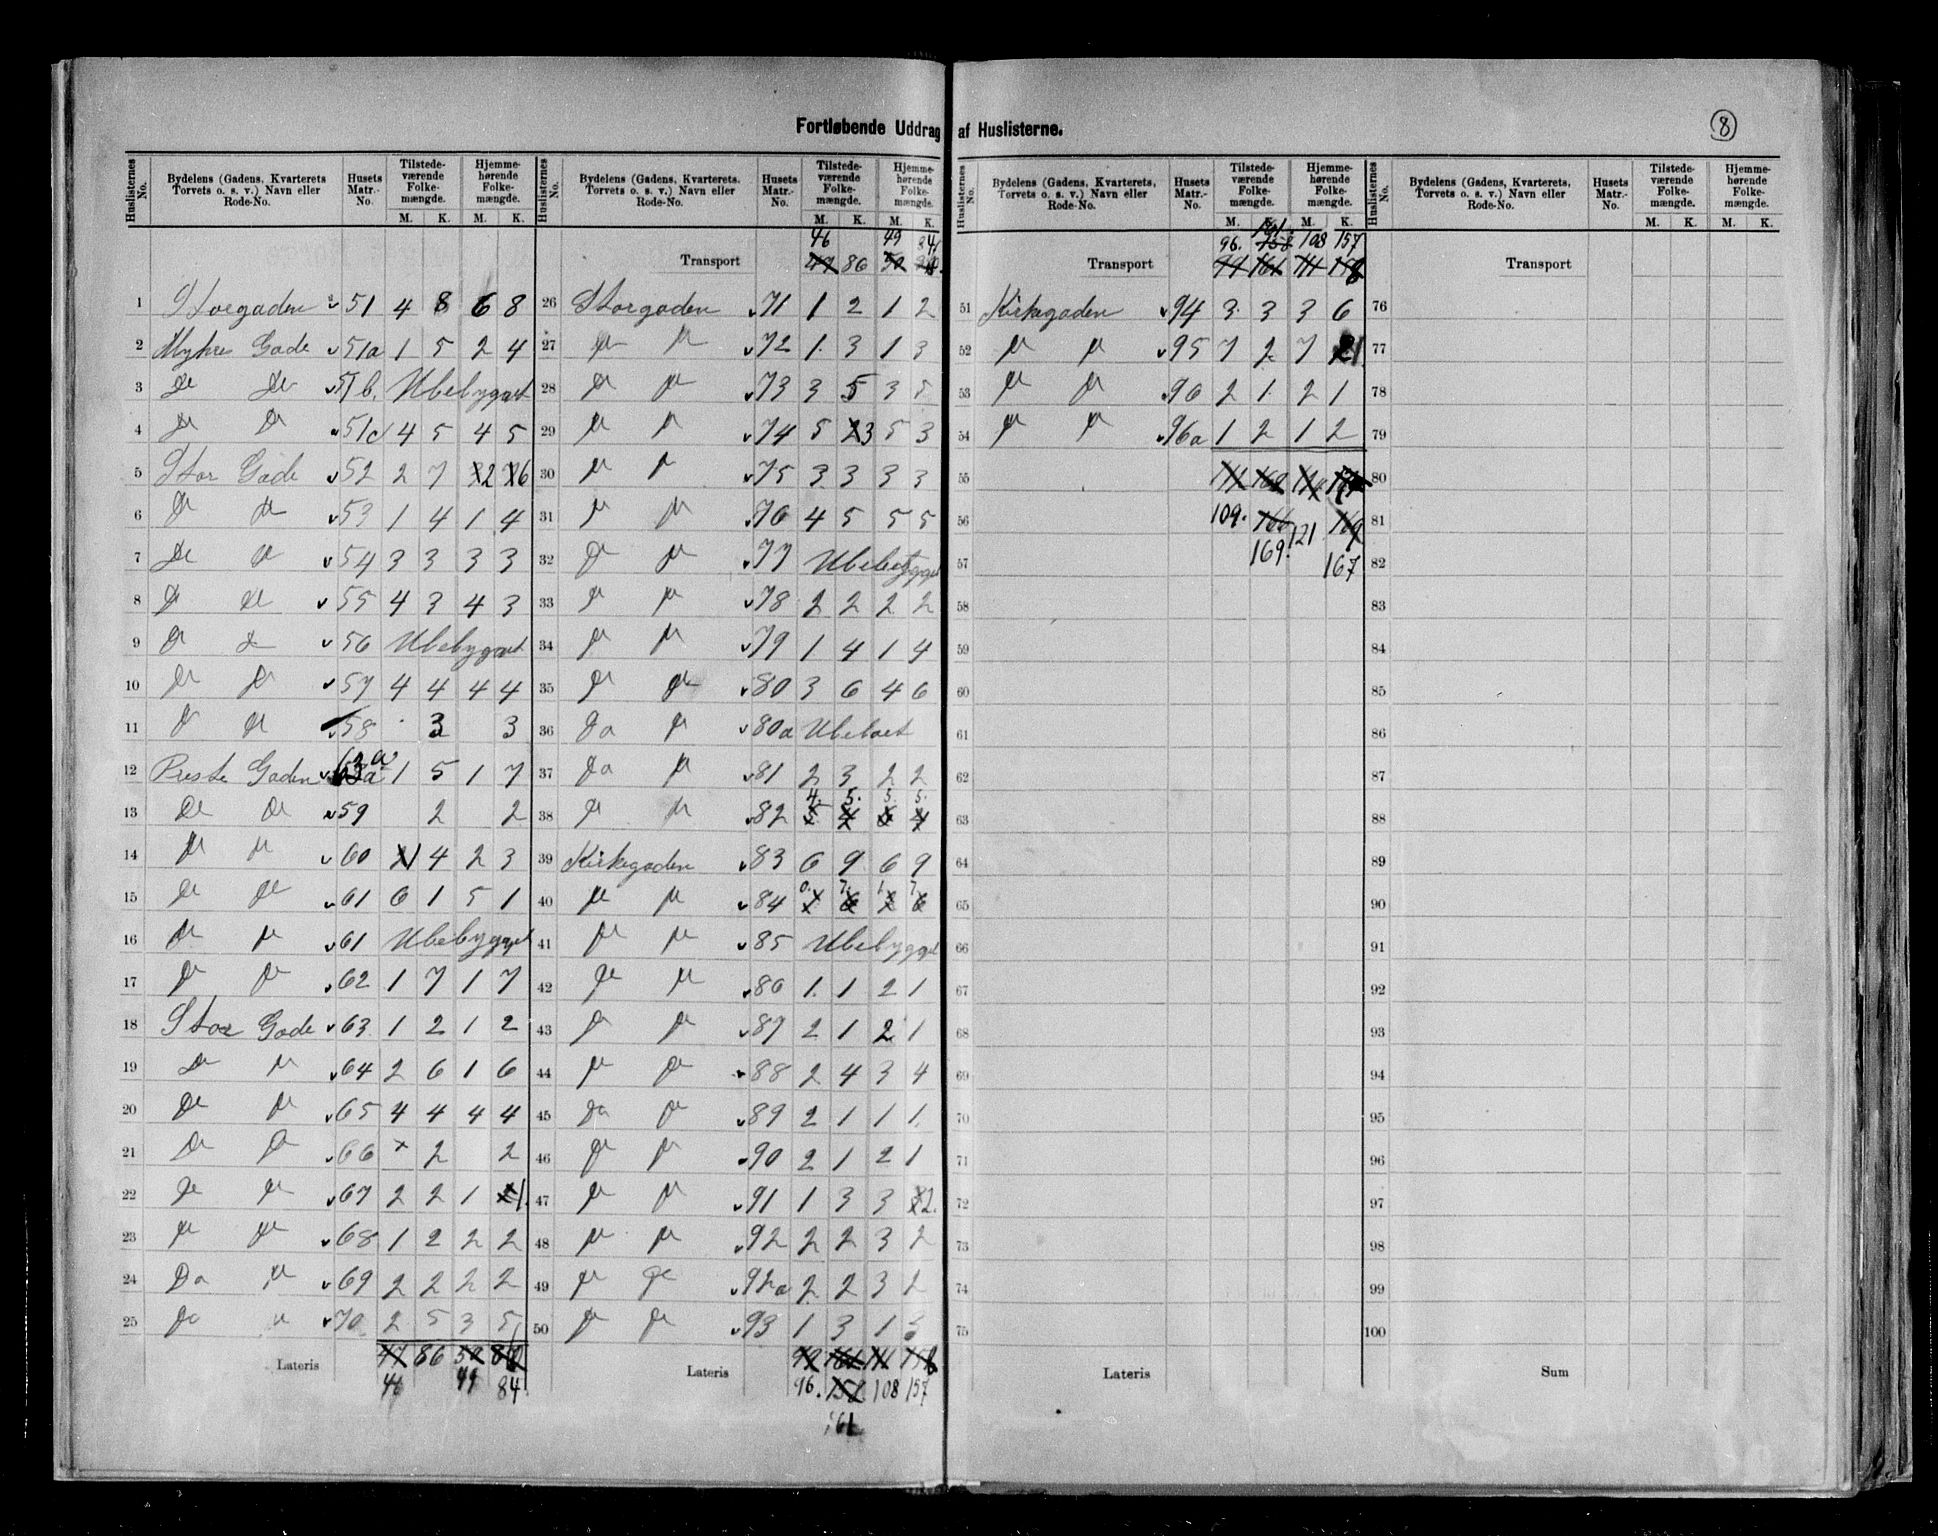 Fortløbende Uddrag af Huslisterne.
8
Huslisternes No. | Bydelens (Gadens, Kvarterets, Torvets o. s. v.) Navn eller Rode-No. | Husets Matr.-No. | Tilstedeværende Folkemængde. M. K. | Hjemmehørende Folkemængde. M. K.
1 Storgaden 51 4 8 6 8
2 Myhre Gade 51a 1 5 2 4
3 Do Do 51b. Ubebygget
4 Do Do 51c 4 5 4 5
5 Stor Gade 52 2 7 2 6
6 Do Do 53 1 4 1 4
7 Do Do 54 3 3 3 3
8 Do Do 55 4 3 4 3
9 Do Do 56 Ubebygget
10 Do Do 57 4 4 4 4
11 Do Do 58 3 3
12 Preste Gaden 63a 1 5 1 7
13 Do Do 59 2 2
14 Do Do 60 1 4 2 3
15 Do Do 61 6 1 5 1
16 Do Do 61 Ubebygget
17 Do Do 62 1 7 1 7
18 Stor Gade 63 1 2 1 2
19 Do Do 64 2 6 1 6
20 Do Do 65 4 4 4 4
21 Do Do 66 × 2 2
22 Do Do 67 2 2 1 1.
23 Do Do 68 1 2 2 2
24 Do Do 69 2 2 2 2
25 Do Do 70 2 5 3 5
Lateris 47 86 50
46 49 84.
Huslisternes No. | Bydelens (Gadens, Kvarterets, Torvets o. s. v.) Navn eller Rode-No. | Husets Matr.-No. | Tilstedeværende Folkemængde. M. K. | Hjemmehørende Folkemængde. M. K.
46 49 84
Transport 47 86 50
26 Storgaden 71 1 2 1 2
27 Do Do 72 1 3 1 3
28 Do Do 73 3 5 3 5
29 Do Do 74 5 3 5 3
30 Do Do 75 3 3 3 3
31 Do Do 76 4 5 5 5
32 Do Do 77 Ubebygget
33 Do Do 78 2 2 2 2
34 Do Do 79 1 4 1 4
35 Do Do 80 3 6 4 6
36 Do Do 80a Ubeboet
37 Do Do 81 2 3 2 2
4. 5. 5. 5.
38 Do Do 82 5 4 6 4
39 Kirkegaden 83 6 9 6 9
0. 7. 1 7
40 Do Do 84 1 6 2 6
41 Do Do 85 Ubebygget
42 Do Do 86 1. 1 2 1
43 Do Do 87 2 1 2 1
44 Do Do 88 2 4 3 4
45 Do Do 89 2 1 1 1
46 Do Do 90 2 1 2 1
47 Do Do 91 1 3 3 2.
48 Do Do 92 2 2 3 2
49 Do Do 92a 2 2 3 2
50 Do Do 93 1 3 1 3
Lateris 99 161 111 158
96. 158 108 157
161
Huslisternes No. | Bydelens (Gadens, Kvarterets, Torvets o. s. v.) Navn eller Rode-No. | Husets Matr.-No. | Tilstedeværende Folkemængde. M. K. | Hjemmehørende Folkemængde. M. K.
161.
96. 158 108 157
Transport 99 161 111 158
51 Kirkegaden 94 3 3 3 6
52 Do Do 95 7 2 7 1
53 Do Do 96 2 1 2 1
54 Do Do 96a 1 2 1 2
55
56 109. 166 121 169
57 169. 167
58
59
60
61
62
63
64
65
66
67
68
69
70
71
72
73
74
75
Lateris
Huslisternes No. | Bydelens (Gadens, Kvarterets, Torvets o. s. v.) Navn eller Rode-No. | Husets Matr.-No. | Tilstedeværende Folkemængde. M. K. | Hjemmehørende Folkemængde. M. K.
Transport
76
77
78
79
80
81
82
83
84
85
86
87
88
89
90
91
92
93
94
95
96
97
98
99
100
Sum